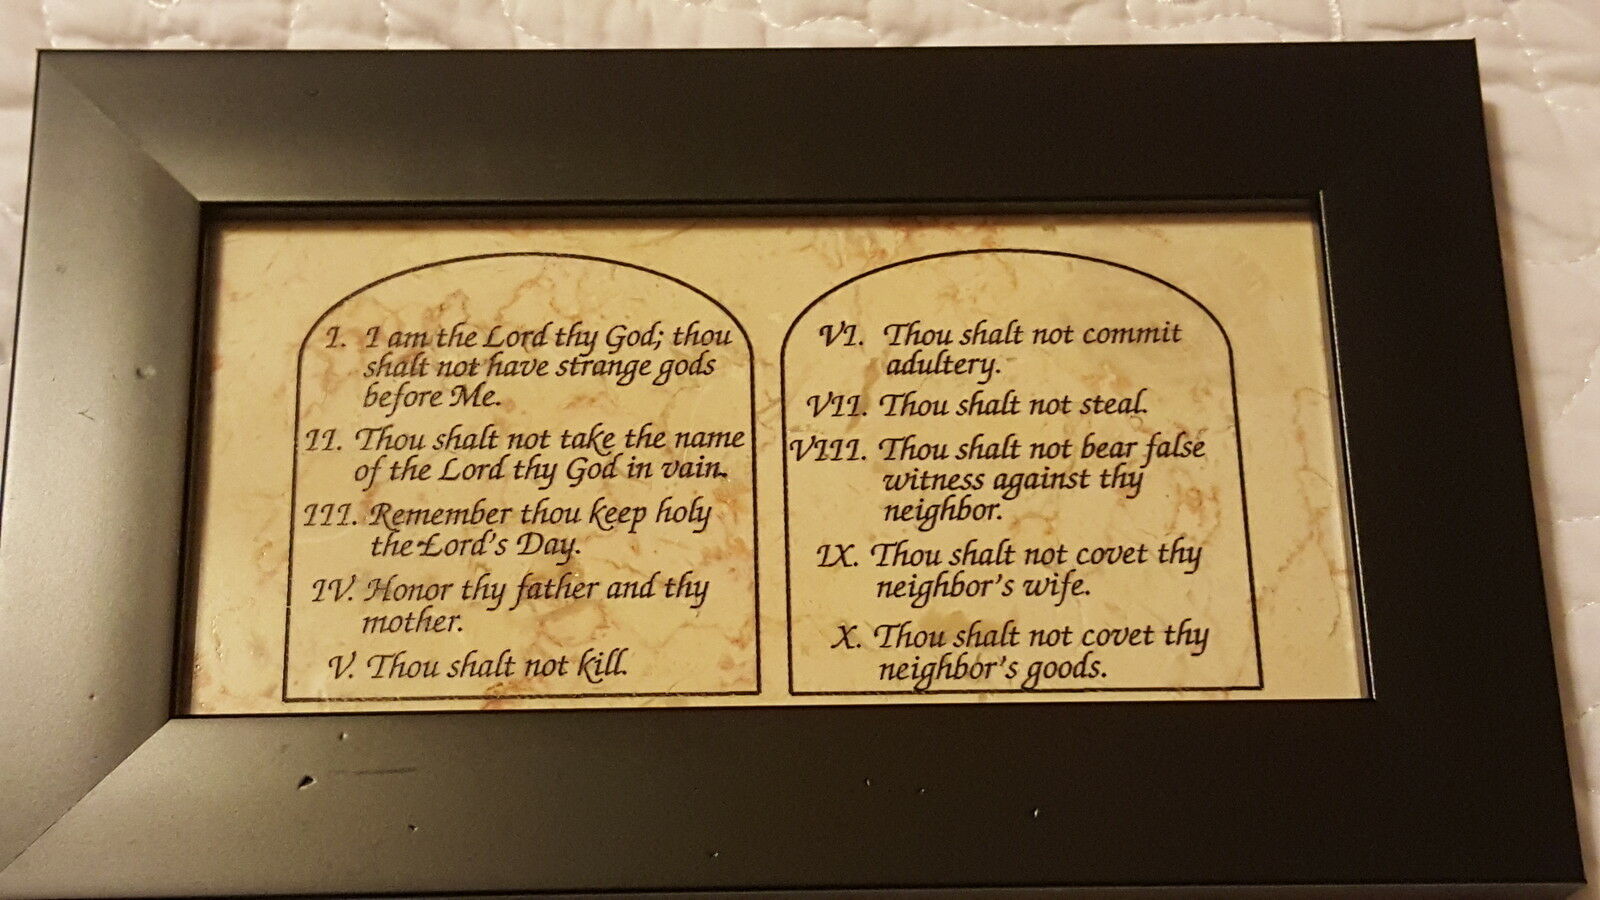 I. I am the Lord thy God; thou
shalt not have strange gods
before Me.
II. Thou shalt not take the name
of the Lord thy God in vain.
III. Remember thou keep holy
the Lord's Day.
IV. Honor thy father and thy
mother.
V. Thou shalt not kill.
VI. Thou shalt not commit
adultery.
VII. Thou shalt not steal.
VIII. Thou shalt not bear false
witness against thy
neighbor.
IX. Thou shalt not covet thy
neighbor's wife.
X. Thou shalt not covet thy
neighbor's goods.